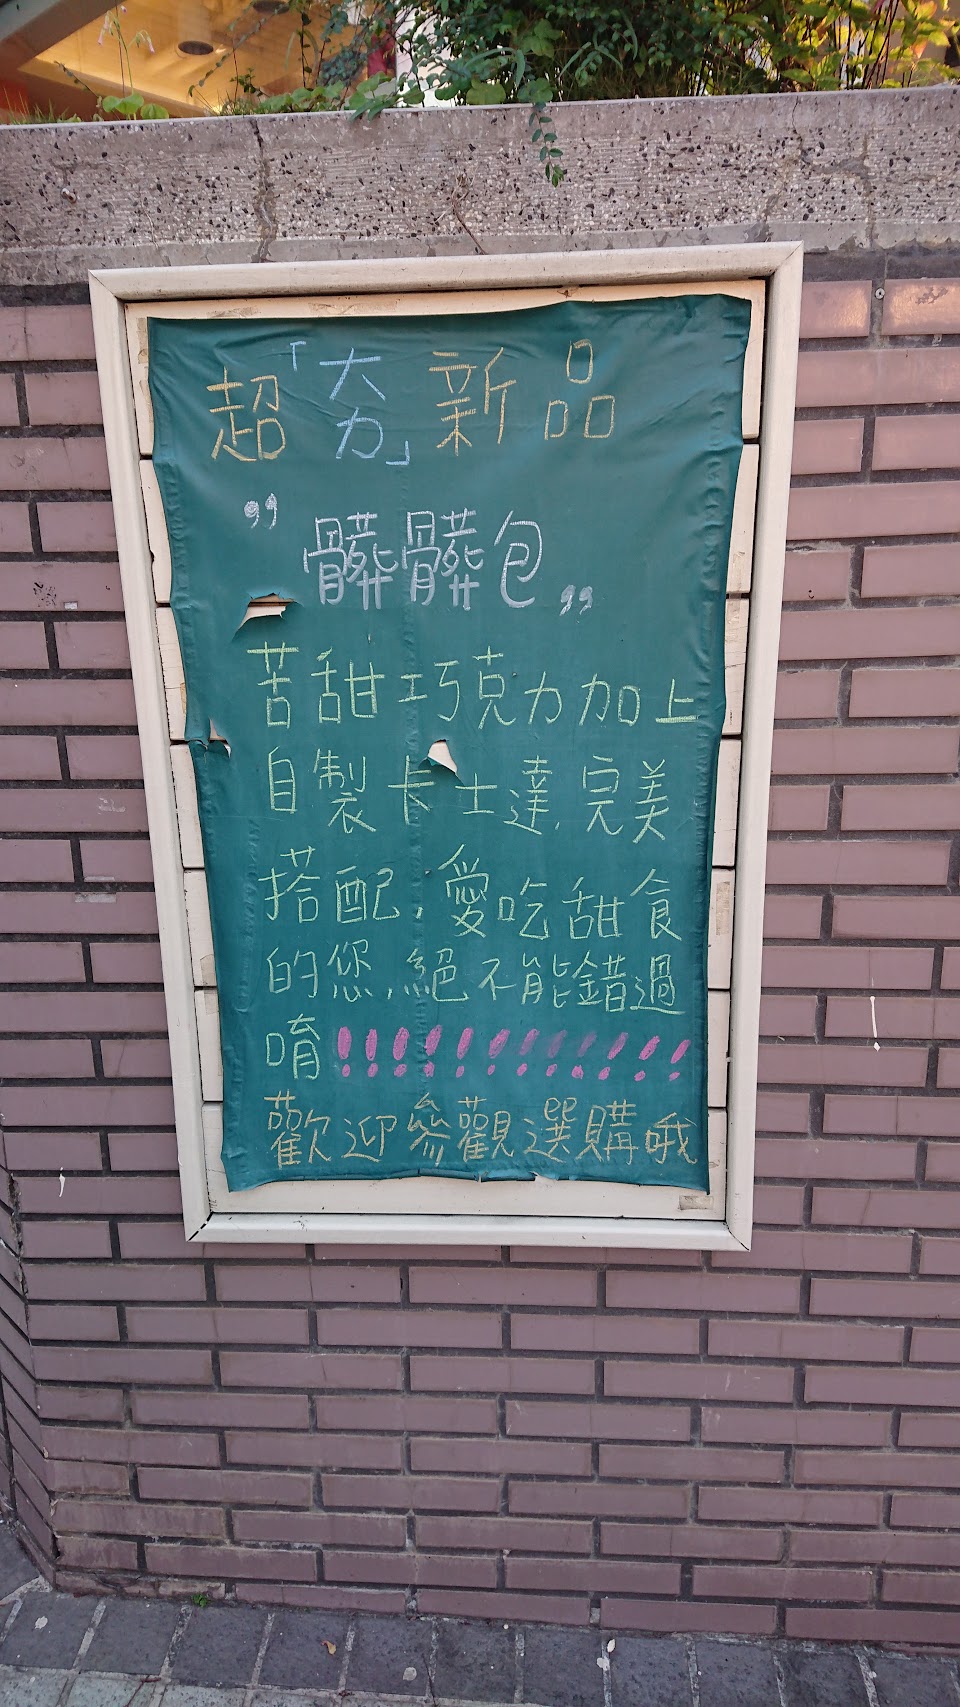 超「夯」新品
”髒髒包”
苦甜巧克力加上
自製卡士達,完美
搭配,愛吃甜食
的您,絕不能錯過
唷!!!!!!!!!!!!
歡迎參觀選購哦